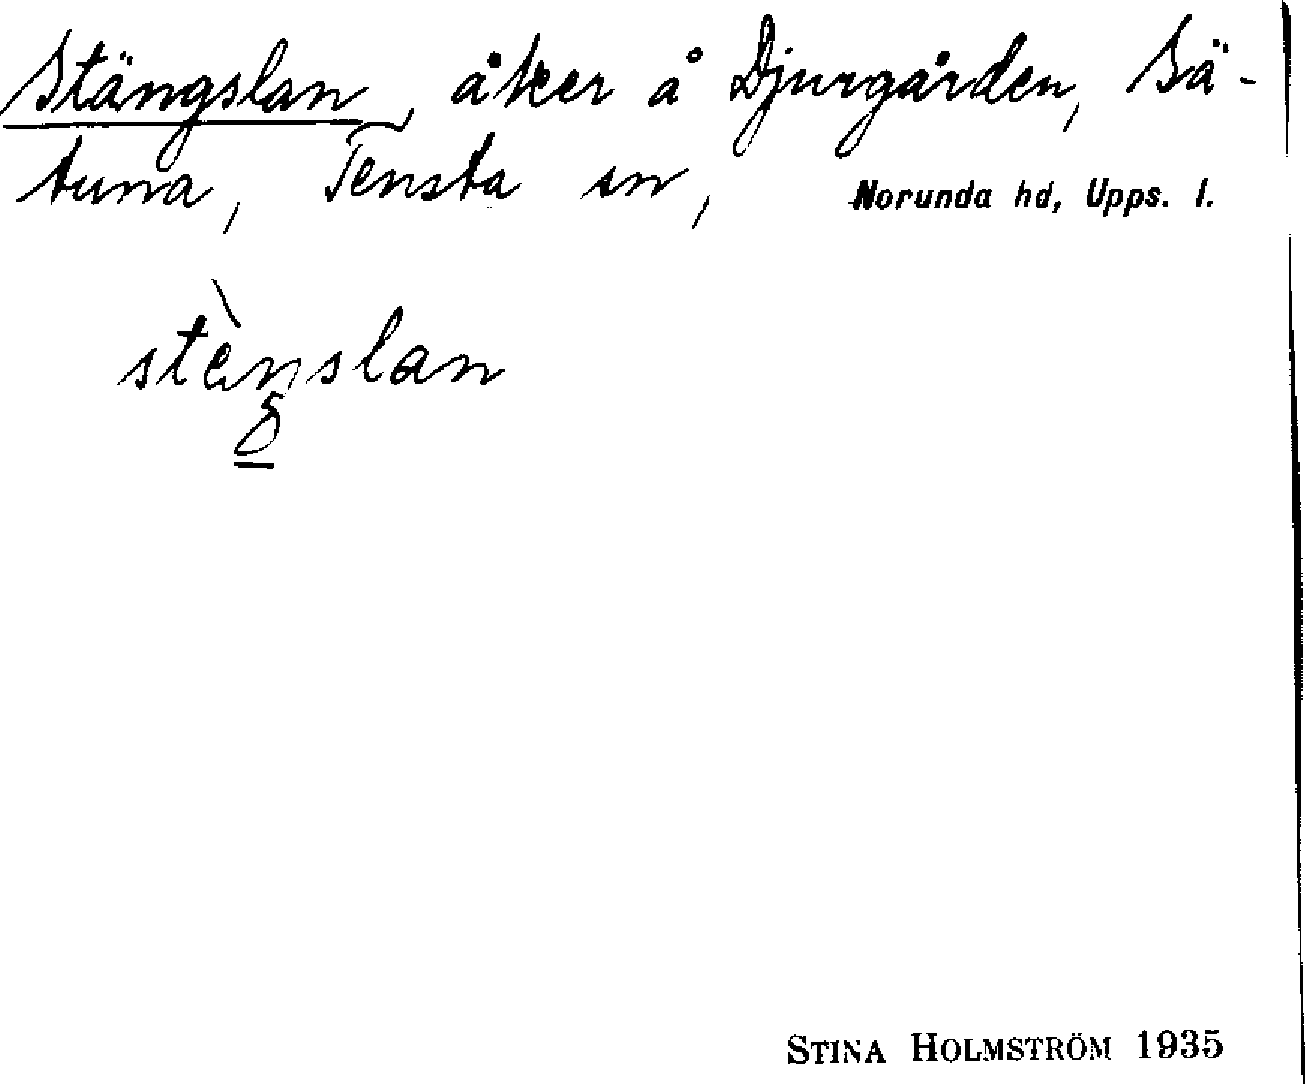 Stängslan, åker å Djurgården, Sä-
tuna, Tensta sn, Norunda hd, Upps. l.
stèŋslan
STINA HOLMSTRÖM 1935